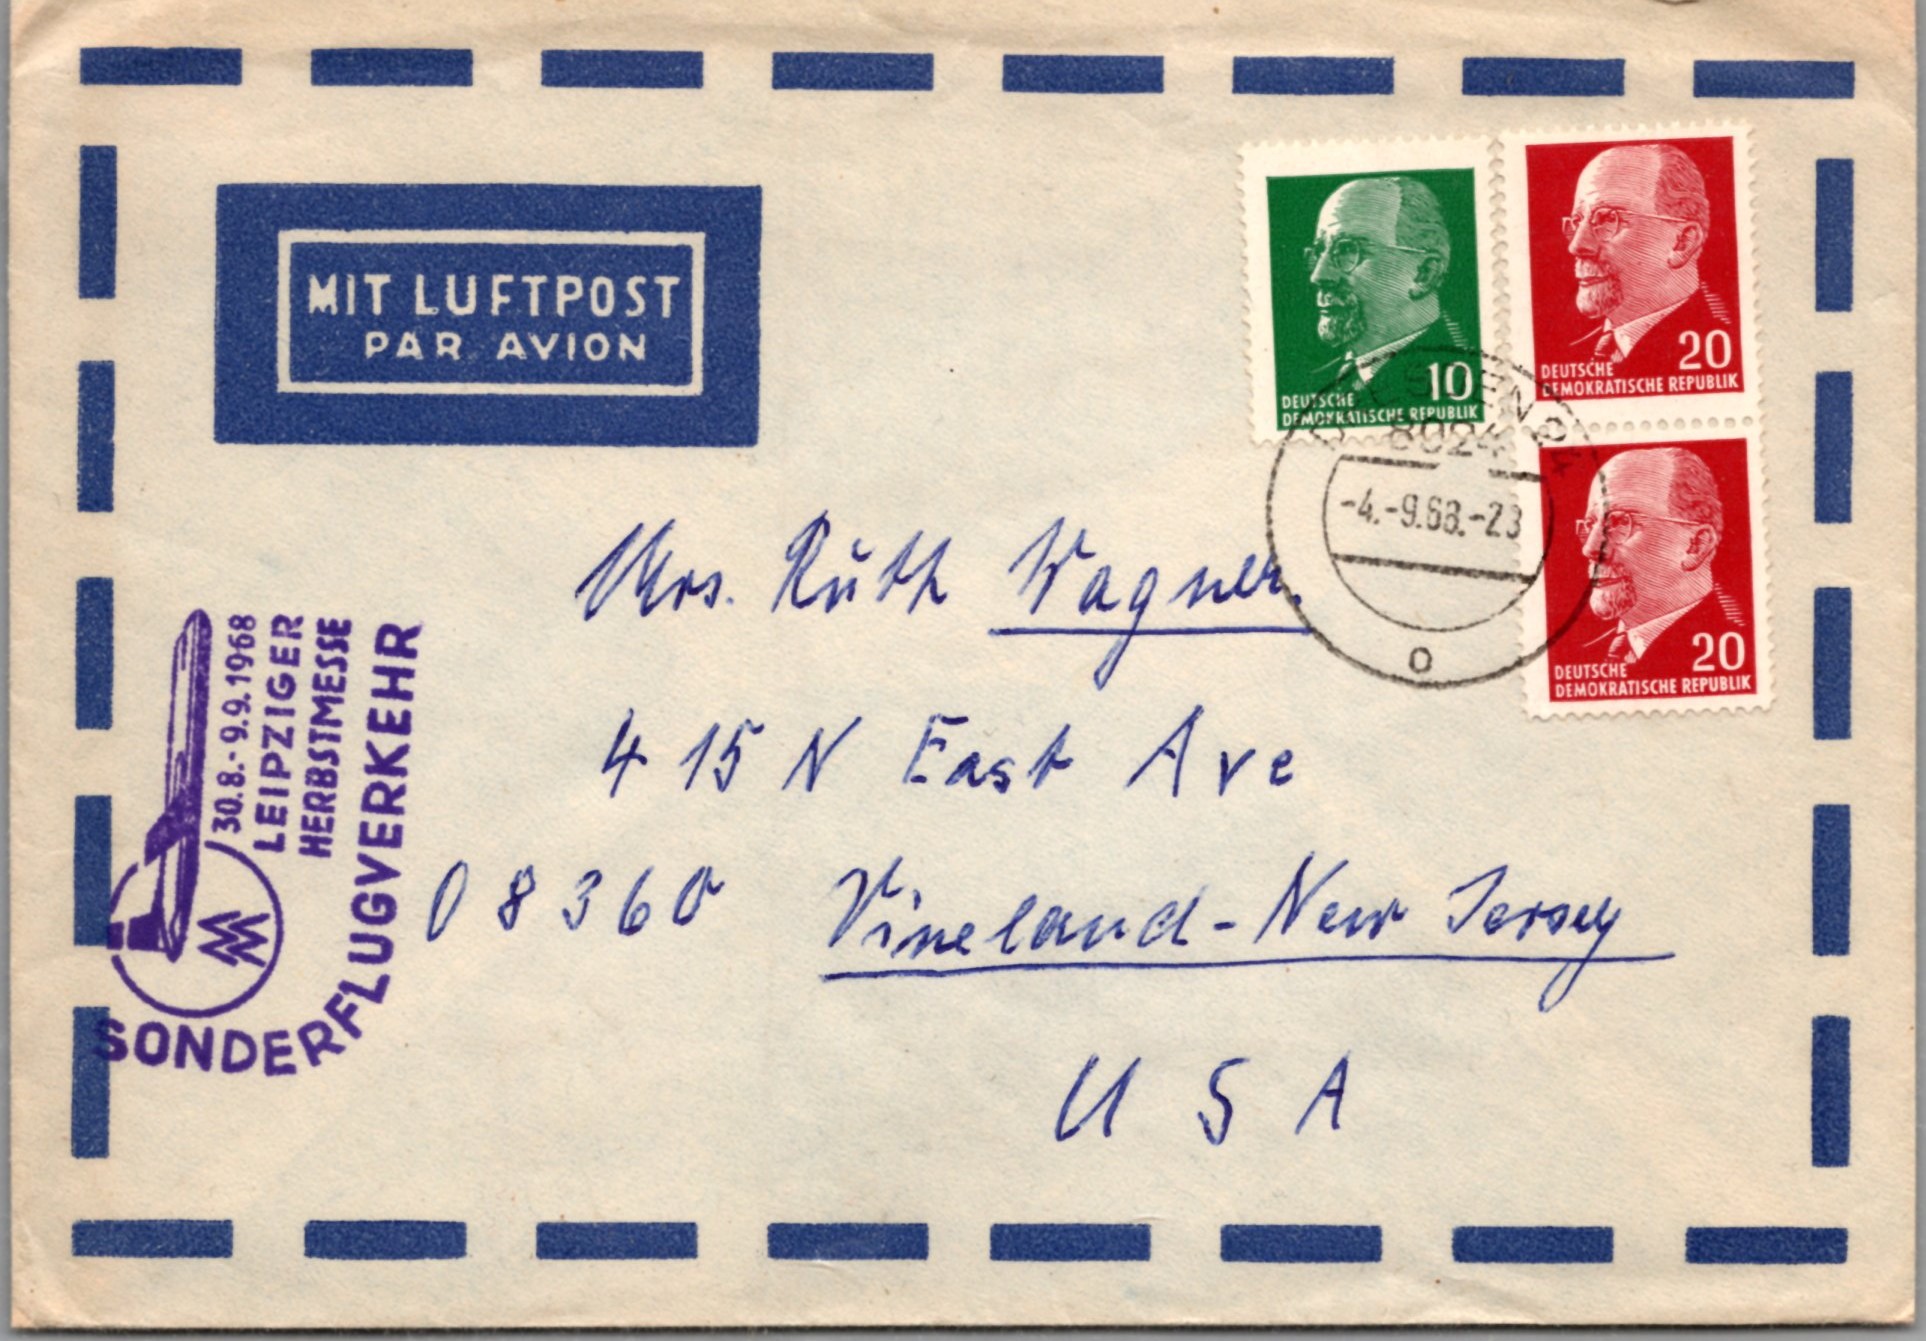 MIT LUFTPOST
PAR AVION
10
DEUTSCHE
DEMOKRATISCHE REPUBLIK
20
DEUTSCHE
DEMOKRATISCHE REPUBLIK
20
DEUTSCHE
DEMOKRATISCHE REPUBLIK
8024
-4.-9.68.-23
o
Mrs. Ruth Wagner.
415 N East Ave
08360 Vineland-New Jersey
USA
30.8.-9.9.1968
LEIPZIGER
HERBSTMESSE
SONDERFLUGVERKEHR
MM